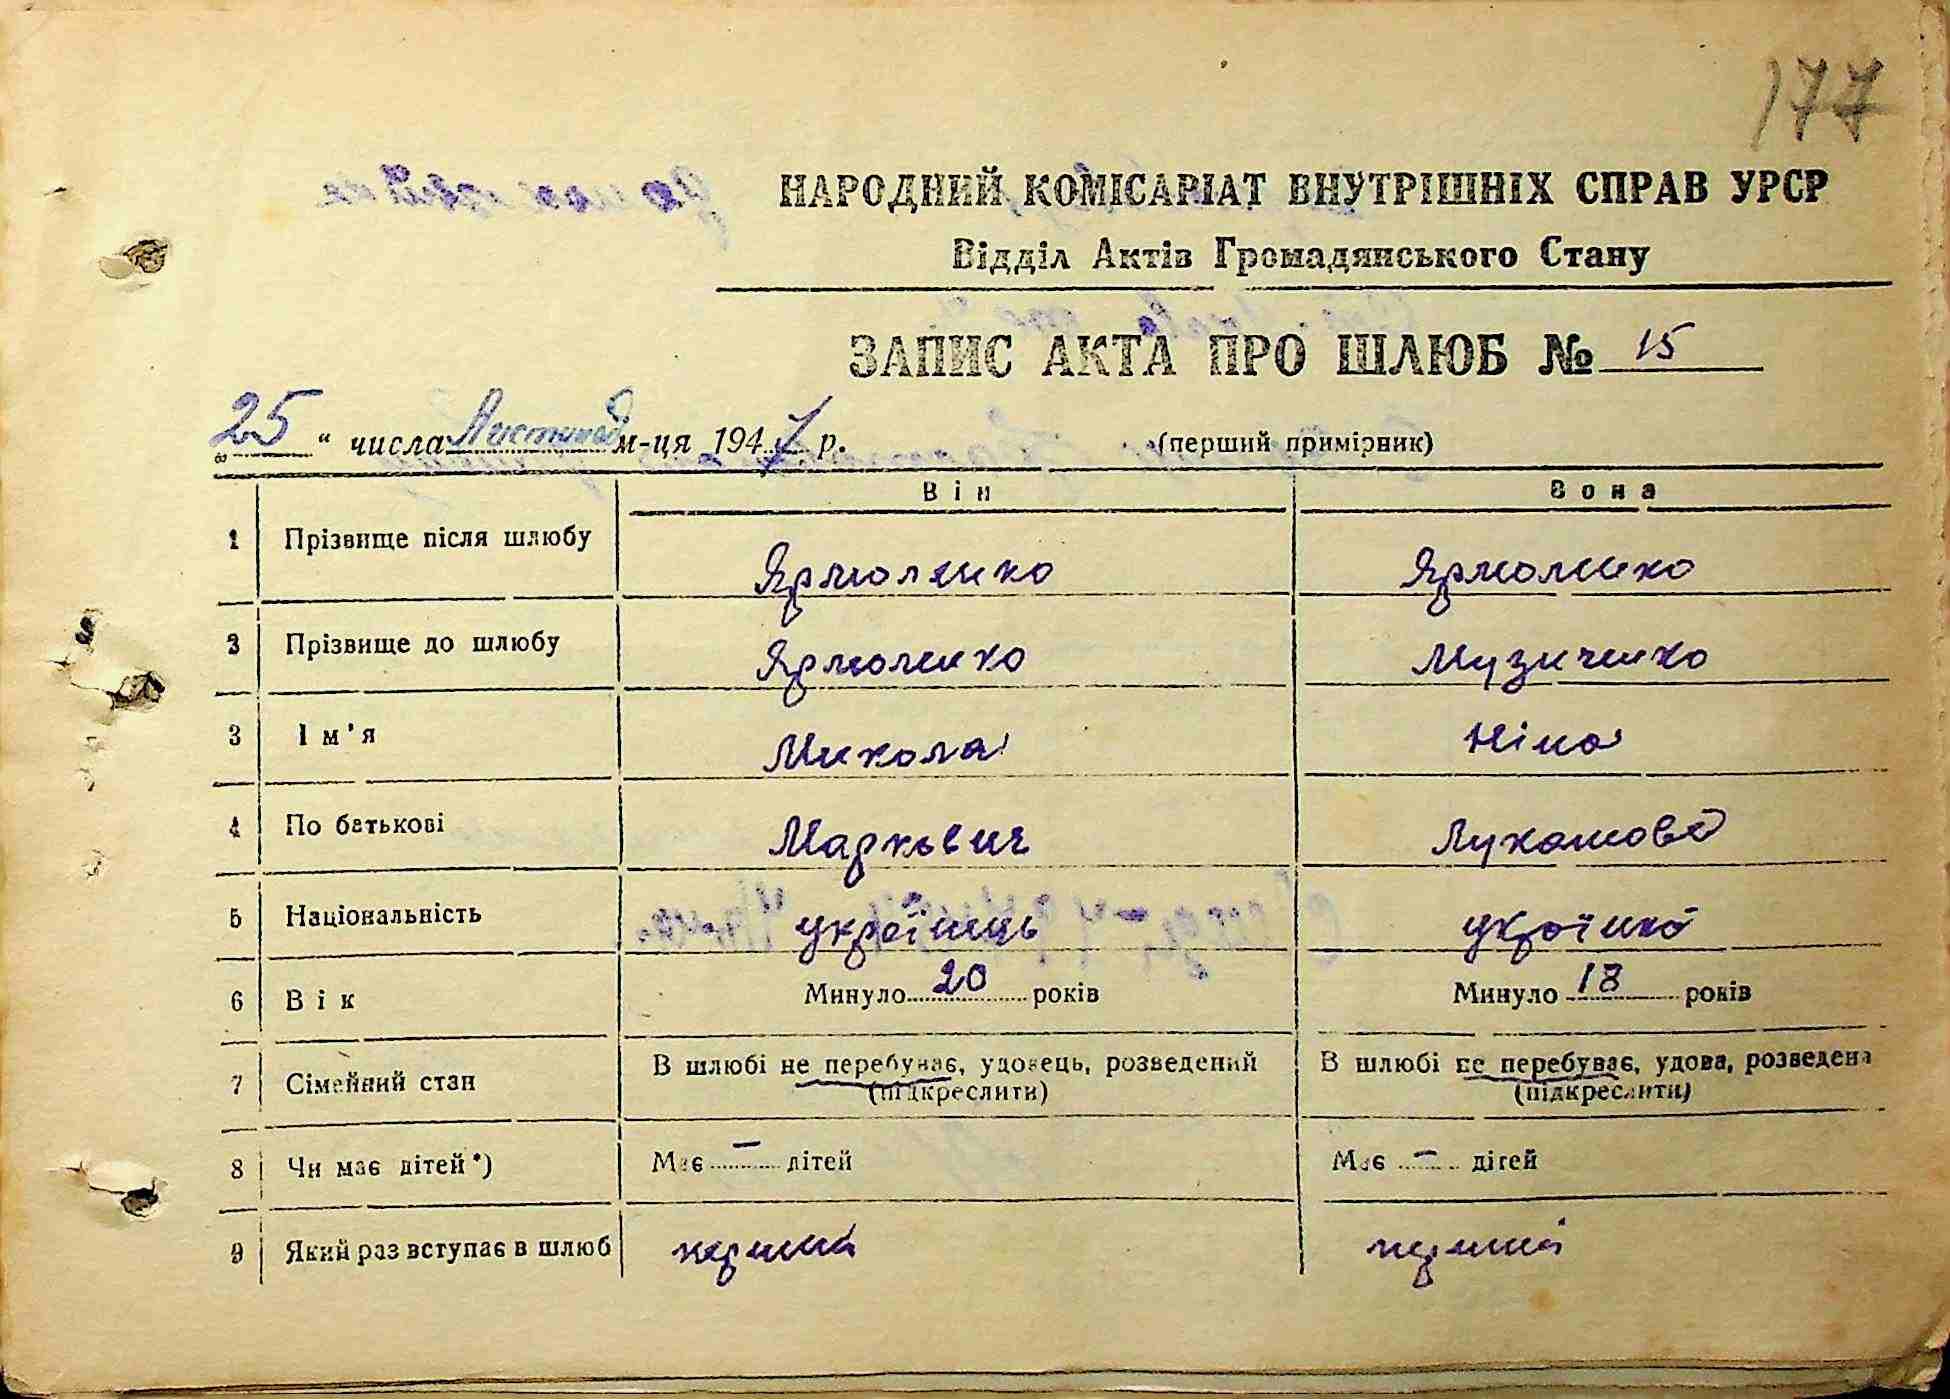 177
НАРОДНИЙ КОМІСАРІАТ ВНУТРІШНІХ СПРАВ УРСР
Відділ Актів Громадянського Стану
ЗАПИС АКТА ПРО ШЛЮБ № 15
„25“ числа Листопад м-ця 1947 р. (перший примірник)
Він Вона
1 Прізвище після шлюбу Ярмоленко Ярмоленко
2 Прізвище до шлюбу Ярмоленко Музиченко
3 Ім'я Микола Ніна
4 По батькові Маркович Лукашова
5 Національність українець українка
6 Вік Минуло 20 років Минуло 18 років
7 Сімейний стан В шлюбі не перебуває, удовець, розведений (підкреслити) В шлюбі не перебуває, удова, розведена (підкреслити)
8 Чи має дітей*) Має — дітей Має — дітей
9 Який раз вступає в шлюб перший перший